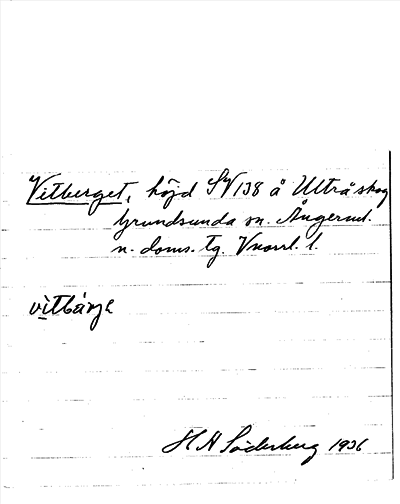 Vitberget, höjd SV 138 å Ultrå skog
Grundsunda sn. Ångerml.
n. doms. tg. Vnorrl. l.
vitbärjɛ
H A Söderberg 1936